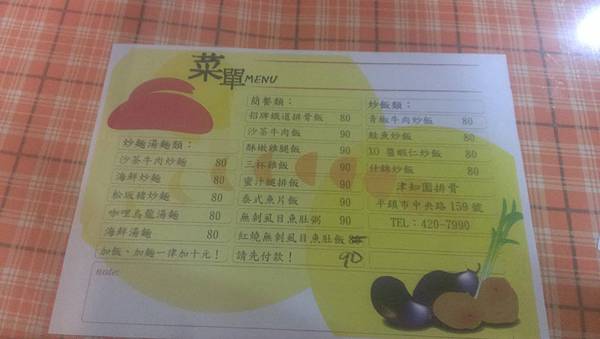 菜單MENU
炒麵湯麵類：
沙茶牛肉炒麵 80
海鮮炒麵 80
松坂豬炒麵 80
咖哩烏龍湯麵 80
海鮮湯麵 80
加飯、加麵一律加十元！
簡餐類：
招牌鐵道排骨飯 80
沙茶牛肉飯 90
酥嫩雞腿飯 90
三杯雞飯 90
蜜汁腿排飯 90
泰式魚片飯 90
無刺虱目魚肚粥 90
紅燒無刺虱目魚肚飯
請先付款！ 90
炒飯類：
青椒牛肉炒飯 80
鮭魚炒飯 80
XO醬蝦仁炒飯 80
什錦炒飯 80
津知園排骨
平鎮市中央路159號
TEL：420-7990
note: